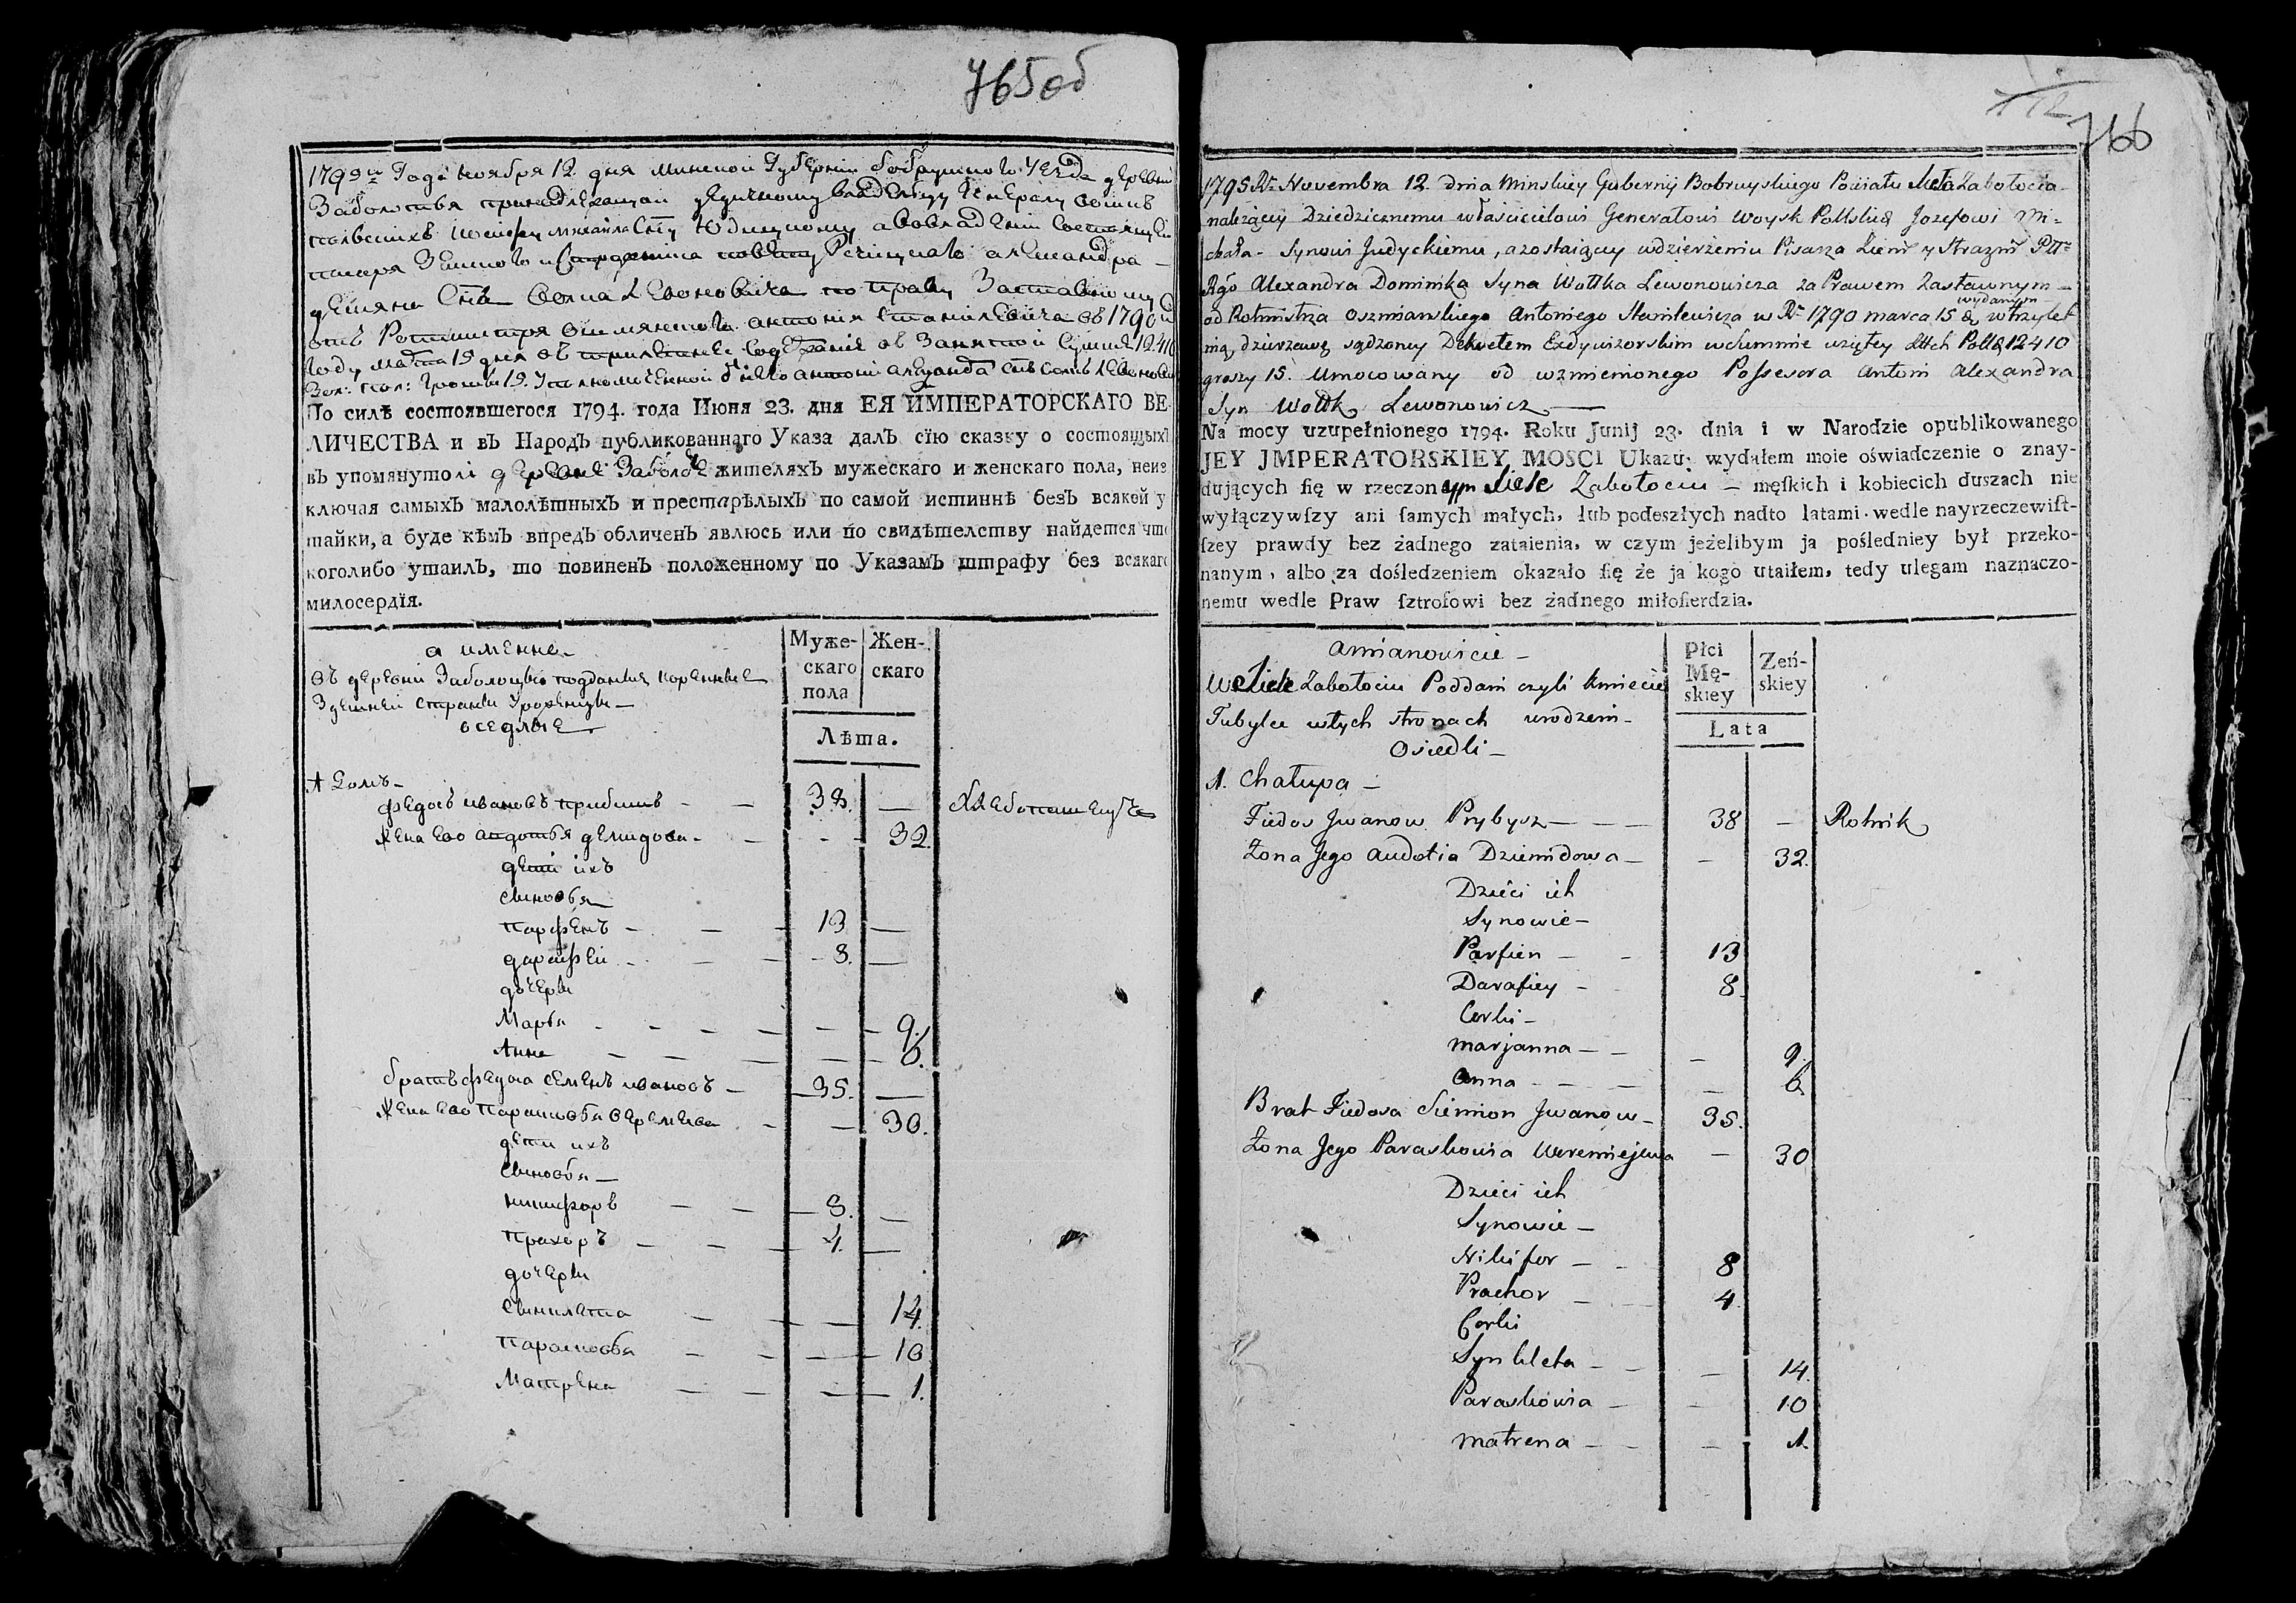 765об
1795го Года ноября 12. дня минской Губерніи бобруйского Уезда деревни
Заболотья принадлежащей дедичному владельцу Генералу войск
полвских Иосифу михайла Сну Юдицкому а во владении состоящей
писаря Земского
Сна волка Левоновича по праву Заставному
от Ротмистра ошмянского антония Станилевича в 1790м
Году марта 15 дня в содержание в Занятой Сумме 12410
Зол: пол: Грошы 15. Уполномоченной от него антони
По силѣ состоявшегося 1794. года Июня 23. дня ЕЯ ИМПЕРАТОРСКАГО ВЕ
ЛИЧЕСТВА и въ Народъ публикованнаго Указа далъ сію сказку о состоящыхъ
въ упомянутой деревне Заболотье жителяхъ мужескаго и женскаго пола, неиз
ключая самыхъ малолѣтныхъ и престарѣлыхъ по самой истиннѣ безъ всякой у
тайки, а буде кѣмъ впредь обличенъ явлюсь или по свидѣтелству найдется что
коголибо утаилъ, то повиненъ положенному по Указамъ штрафу без всякаго
милосердїя.
а имянно
въ деревни Заболоцью подданые коренные
Здешней страны Уроженцы
оседлые
Муже-
скаго
пола
Жен-
скаго
Лѣта.
1 Домъ
федосъ ивановъ прибышъ 38. хлебопашецъ
жена Ево авдотья демидова 32.
дети ихъ
сыновья
парфенъ 13
дарафей 8.
дочери
Марья 9.
Анна 6.
братъ федоса семенъ ивановъ 35.
жена Ево парасковья веремеева 30.
дети ихъ
сыновья
никифоръ 8.
прахоръ 4.
дочери
сынклета 14.
парасковья 10
Матрена 1.
766
1795 Rº Novembra 12. dnia Minskiey Gubernij Bobruyskiego Powiatu Sieła Zabołocia
należący Dziedzicznemu właścicielowi Generałowi Woysk Polskich Jozefowi Mi-
chała Synowi Judyckiemu, a zostaiący w dzierżeniu Pisarza Ziem y Strażni Ptt
Rgo Alexandra Dominika Syna Wołka Lewonowicza za Prawem Zastawnym
wydanym
od Rotmistrza Oszmianskiego Antoniego Stanilewicza w Rº 1790 marca 15 d. w trzylet
nią dzierzawę sądzoney Dekretem Exdywizorskim w summie wziętey Złtch Polkch 12410
groszy 15. Umocowany od wzmienionego Possesora Antoni Alexandra
Syn Wołk Lewonowicz
Na mocy uzupełnionego 1794. Roku Junij 23. dnia i w Narodzie opublikowanego
JEY JMPERATORSKIEY MOSCI Ukazu; wydałem moie oświadczenie o znay-
dujących się w rzeczonym Siele Zabołociu męskich i kobiecich duszach nie
wyłączywszy ani samych małych, lub podeszłych nadto latami wedle nayrzeczewist-
szey prawdy bez żadnego zataienia, w czym jeżelibym ja posledniey był przeko-
nanym, albo za dośledzeniem okazało się że ja kogo utaiłem, tedy ulegam naznaczo-
nemu wedle Praw sztrofowi bez żadnego miłosierdzia.
a mianowicie
W Siele Zabołociu Poddani czyli Kmiecie
Tubylce w tych stronach urodzeni
Osiedli
Płci
Mę-
skiey
Zeń-
skiey
Lata
1. Chałupa
Fiedos Jwanow Prybysz 38 Rolnik
Żona Jego Audotia Dziemidowa 32.
Dzieci ich
Synowie
Parfien 13
Darafiey 8.
Corki
Marjanna 9.
Anna 6.
Brat Fiedosa Siemion Jwanow 35.
Żona Jego Paraskowia Weremiejewa 30
Dzieci ich
Synowie
Nikifor 8
Prachor 4.
Corki
Synkleta 14.
Paraskowia 10
Matrena 1.